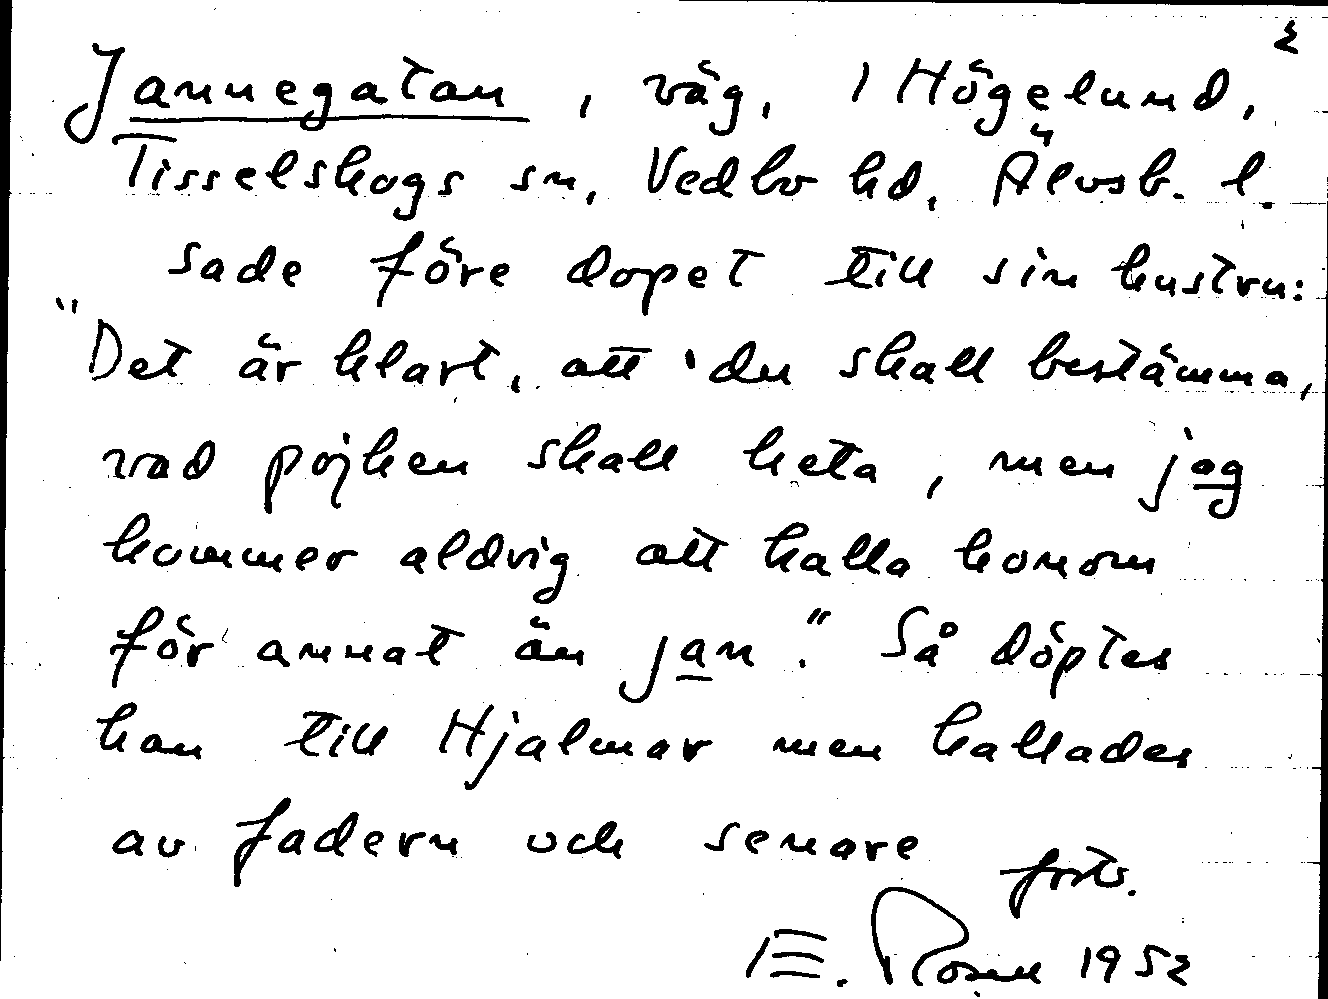 2
Jannegatan, väg, i Högelund,
Tisselskogs sn, Vedbo hd, Älvsb. l.
sade före dopet till sin hustru:
"Det är klart, att du skall bestämma,
vad pojken skall heta, men jag
kommer aldrig att kalla honom
för annat än Jan". Så döptes
han till Hjalmar men kallades
av fadern och senare
forts.
E. Rosell 1952